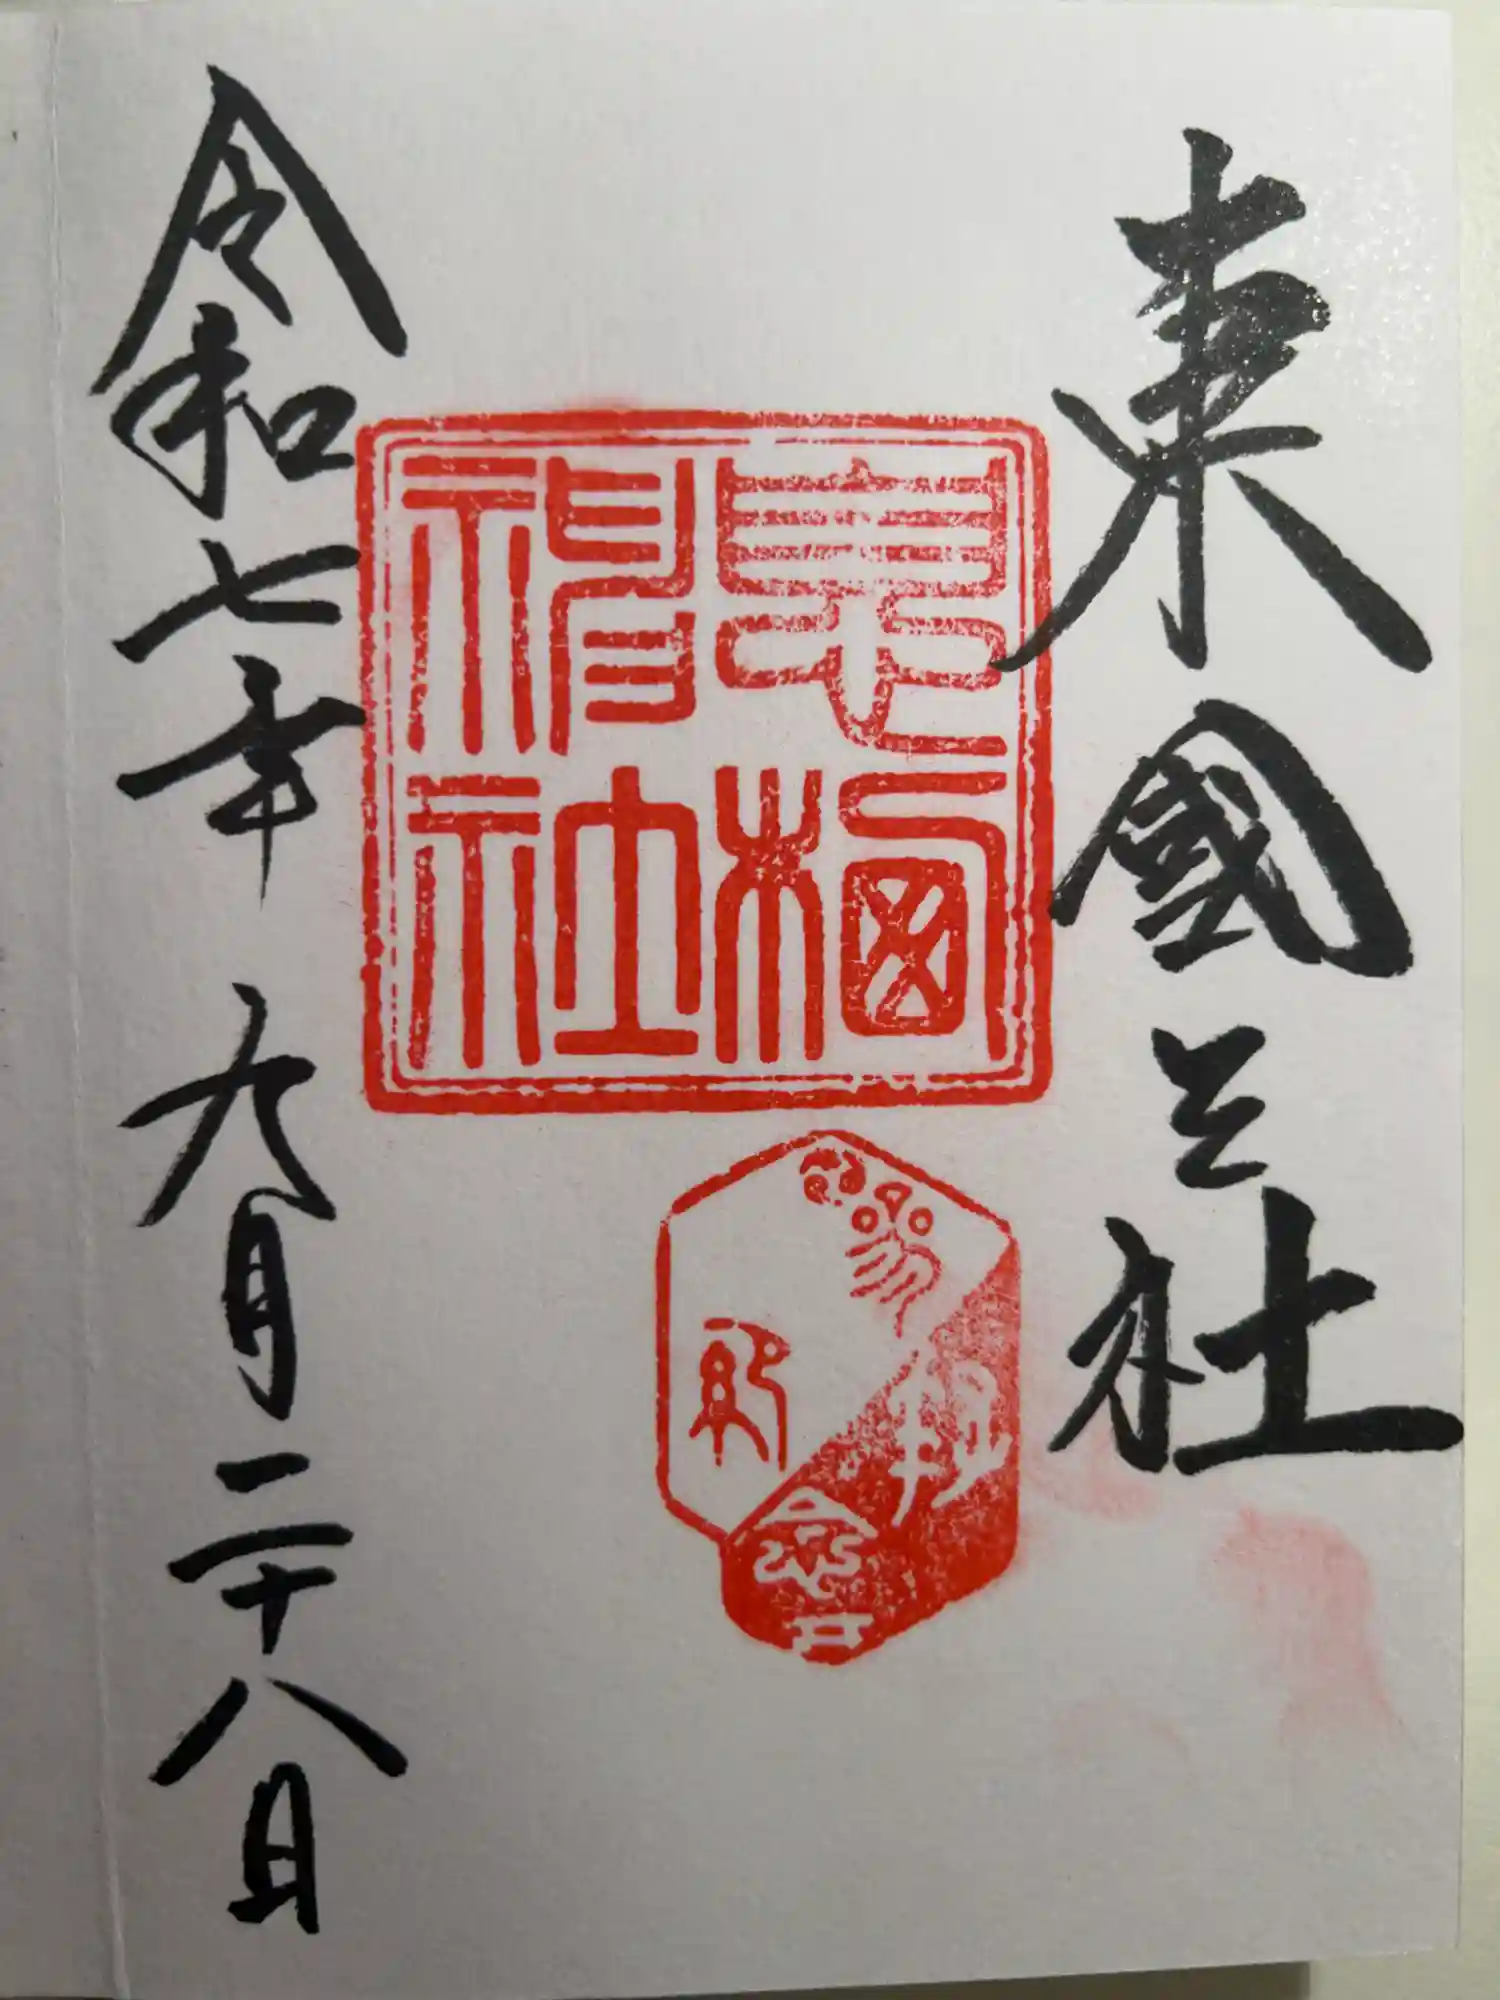 東國三社
息栖
神社
参拝
紀念
令和七年九月二十八日